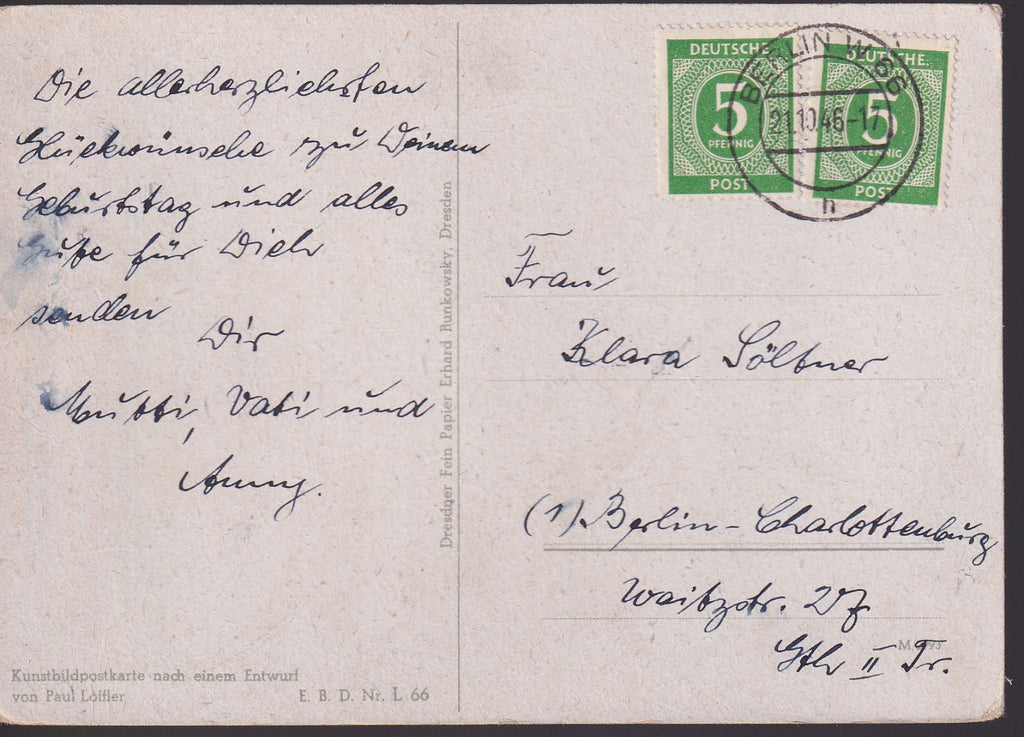 Die allerherzlichsten
Glückwünsche zu Deinem
Geburtstag und alles
Gute für Dich
senden
Dir
Mutti, Vati und
Anny.
Kunstbildpostkarte nach einem Entwurf
von Paul Löffler
E. B. D. Nr. L 66
Dresdner Fein Papier Erhard Bunkowsky, Dresden
DEUTSCHE
5
PFENNIG
POST
DEUTSCHE
5
PFENNIG
POST
BERLIN W 66
21.10.46-17
h
Frau
Klara Söltner
(1) Berlin-Charlottenburg
Waitzstr. 27
Gth II Tr.